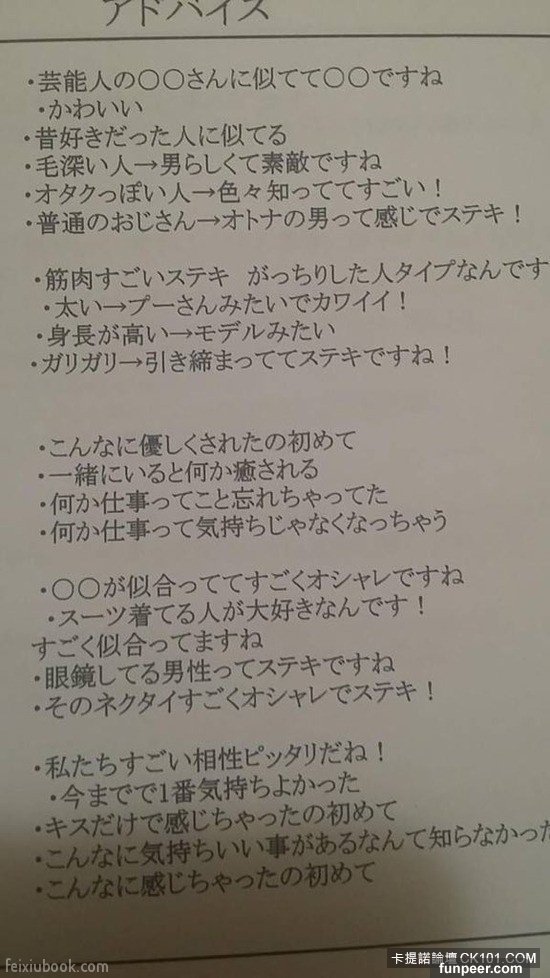 アドバイス
・芸能人の〇〇さんに似てて〇〇ですね
・かわいい
・昔好きだった人に似てる
・毛深い人→男らしくて素敵ですね
・オタクっぽい人→色々知っててすごい！
・普通のおじさん→オトナの男って感じでステキ！
・筋肉すごいステキ　がっちりした人タイプなんです
・太い→プーさんみたいでカワイイ！
・身長が高い→モデルみたい
・ガリガリ→引き締まっててステキですね！
・こんなに優しくされたの初めて
・一緒にいると何か癒される
・何か仕事ってこと忘れちゃってた
・何か仕事って気持ちじゃなくなっちゃう
・〇〇が似合っててすごくオシャレですね
・スーツ着てる人が大好きなんです！
すごく似合ってますね
・眼鏡してる男性ってステキですね
・そのネクタイすごくオシャレでステキ！
・私たちすごい相性ピッタリだね！
・今までで1番気持ちよかった
・キスだけで感じちゃったの初めて
・こんなに気持ちいい事があるなんて知らなかった
・こんなに感じちゃったの初めて
feixiubook.com
卡提諾論壇 CK101.COM
funpeer.com